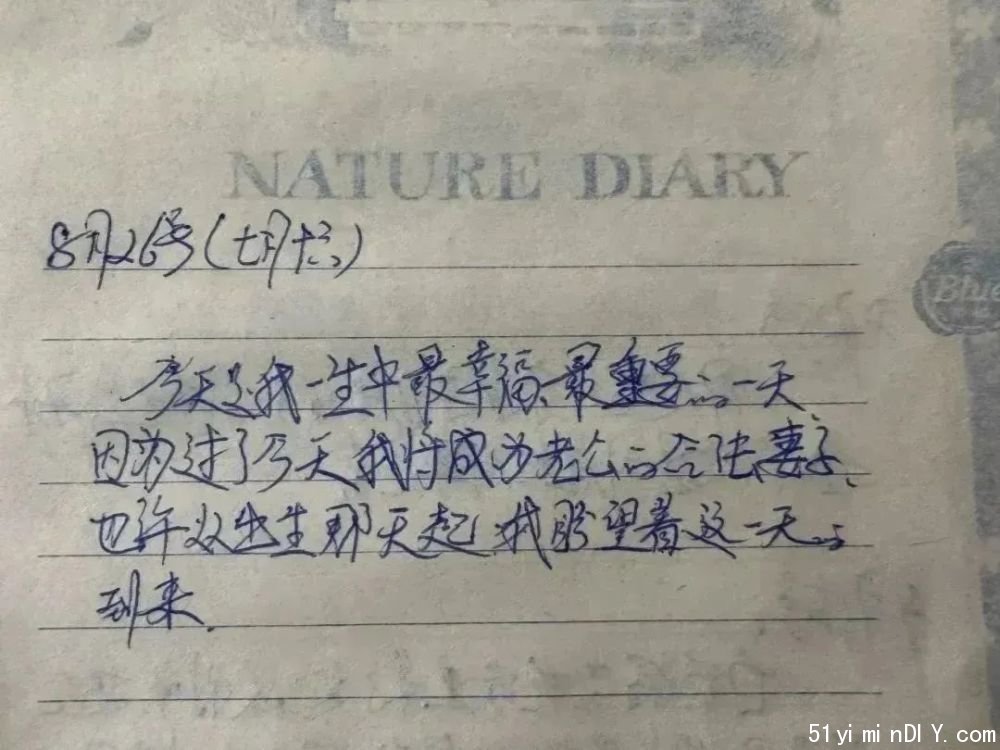 NATURE DIARY
8月26号(七月十六)
Blue
今天是我一生中最幸福、最重要的一天
因为过了今天我将成为老公的合法妻子、
也许从出生那天起我盼望着这一天的
到来.
51yiminDIY.com